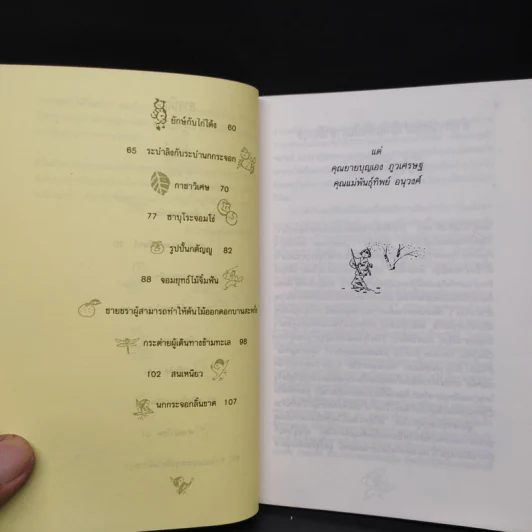 ยักษ์กับไก่โต้ง 60
65 ระบำลิงกับระบำนกกระจอก
กาชาวิเศษ 70
77 ซาบุโระจอมโง่
รูปปั้นกตัญญู 82
88 จอมยุทธ์ไม้จิ้มฟัน
ชายชราผู้สามารถทำให้ต้นไม้ออกดอกบานสะพรั่ง
กระต่ายผู้เดินทางข้ามทะเล 98
102 สนเหนียว
นกกระจอกลิ้นขาด 107
แด่
คุณยายบุญเอง ภูวเศรษฐ
คุณแม่พันธุ์ทิพย์ อนุวงศ์